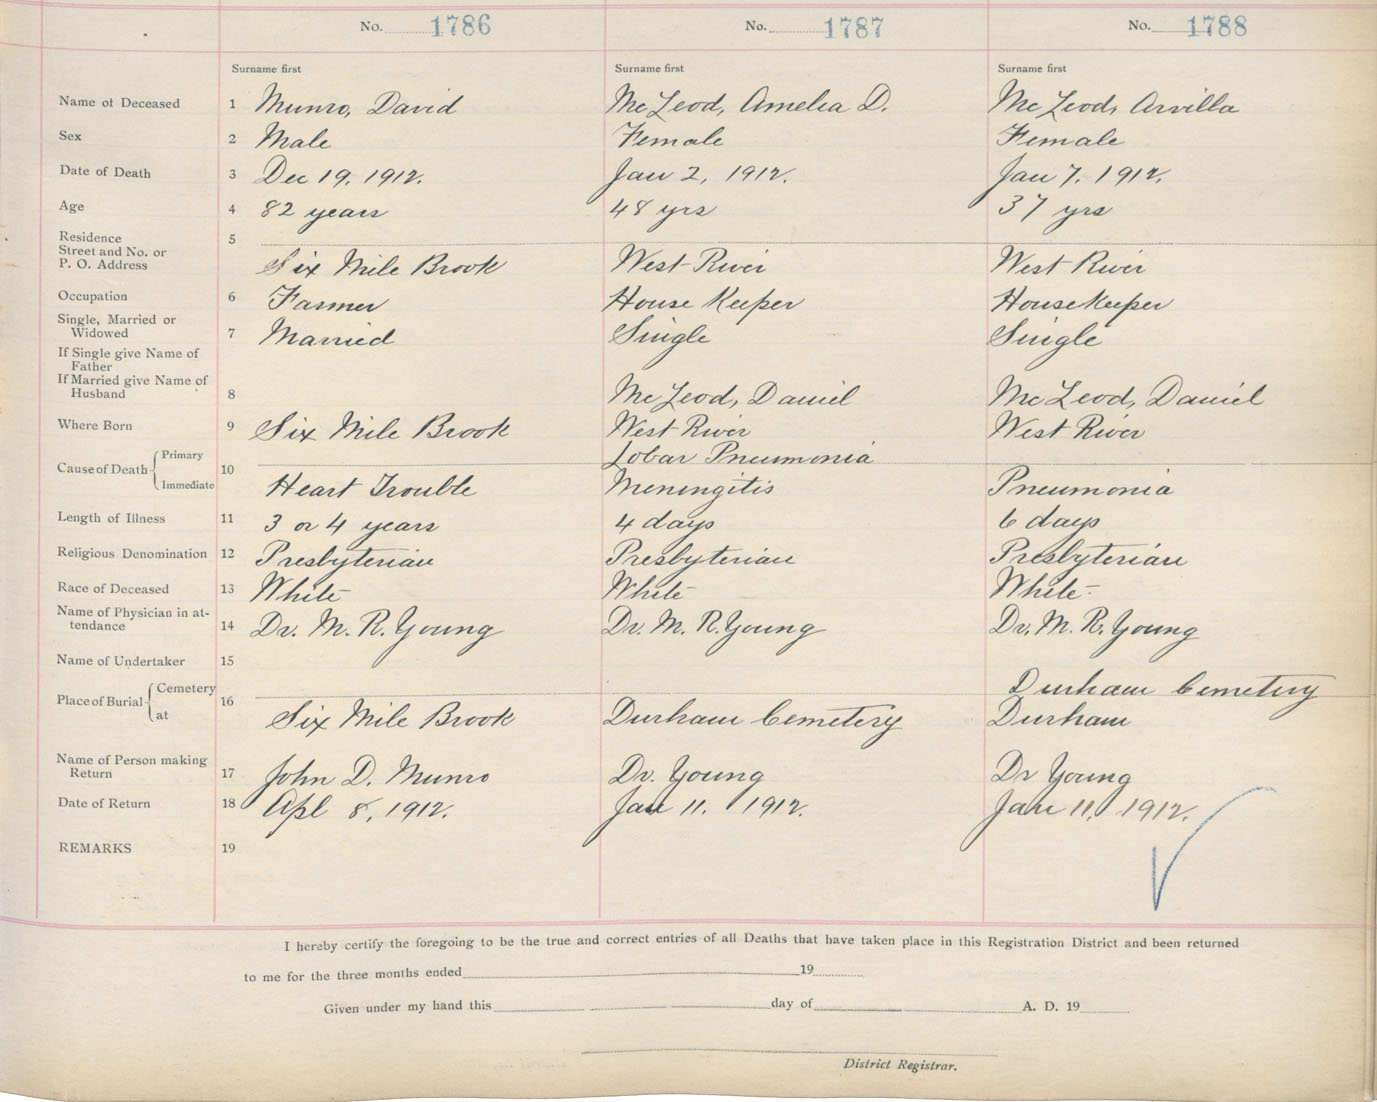 No. 1786 No. 1787 No. 1788
Surname first Surname first Surname first
Name of Deceased 1 Munro, David McLeod, Amelia D. McLeod, Arvilla
Sex 2 Male Female Female
Date of Death 3 Dec 19, 1912. Jan 2, 1912. Jan 7, 1912.
Age 4 82 years 48 yrs 37 yrs
Residence 5
Street and No. or
P. O. Address Six Mile Brook West River West River
Occupation 6 Farmer House Keeper Housekeeper
Single, Married or
Widowed 7 Married Single Single
If Single give Name of
Father
If Married give Name of
Husband 8 McLeod, Daniel McLeod, Daniel
Where Born 9 Six Mile Brook West River West River
Cause of Death Primary 10 Lobar Pneumonia
Immediate Heart Trouble Meningitis Pneumonia
Length of Illness 11 3 or 4 years 4 days 6 days
Religious Denomination 12 Presbyterian Presbyterian Presbyterian
Race of Deceased 13 White White White
Name of Physician in at-
tendance 14 Dr. M. R. Young Dr. M. R. Young Dr. M. R. Young
Name of Undertaker 15
Place of Burial Cemetery 16 Durham Cemetery
at Six Mile Brook Durham Cemetery Durham
Name of Person making
Return 17 John D. Munro Dr. Young Dr Young
Date of Return 18 Apl 8, 1912. Jan 11. 1912. Jan 11, 1912.
REMARKS 19
I hereby certify the foregoing to be the true and correct entries of all Deaths that have taken place in this Registration District and been returned
to me for the three months ended 19
Given under my hand this day of A. D. 19
District Registrar.